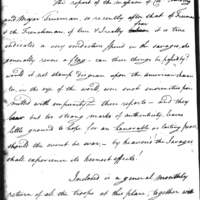 The report of the massacre of Col. Hardin
and Major Trueman, so recently after that of Freeman
the Frenchman, of two & finally four if it is true
indicates a very vindictive spirit in the savages, who
generally revere a flag - can these things be passified?
would it not stamp disgrace upon the american charac-
ter, in the eye of the world, were such enormities per-
mitted with impunity? These reports - and they
bear but too strong marks of authenticity, leave
little ground to hope for an honorable or lasting peace
should the event be war - by heavens the Savages
shall experience its keenest effects!
Inclosed is a general monthly
return of all the troops at this place; together with